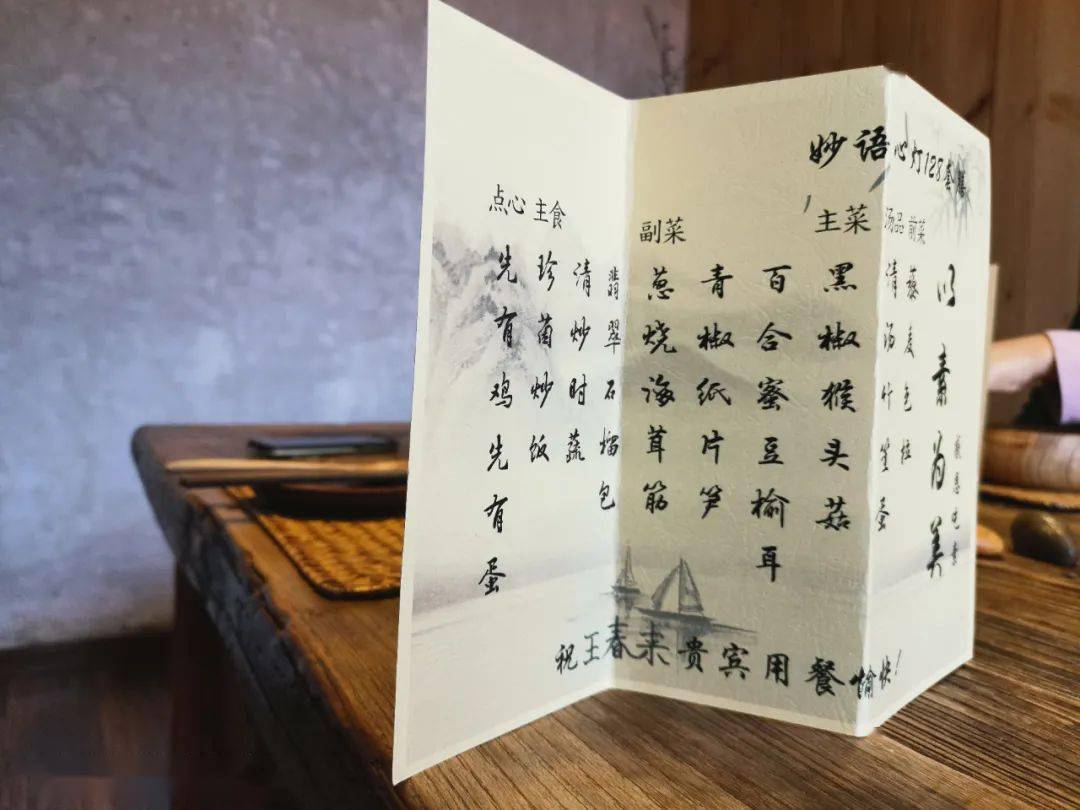 妙语心灯128套
以素为美
感恩吃素
前菜
藜麦色拉
汤品
清汤竹笙蛋
主菜
黑椒猴头菇
百合蜜豆榆耳
副菜
青椒纸片笋
葱烧海茸筋
主食
翡翠石榴包
清炒时蔬
珍菌炒饭
点心
先有鸡先有蛋
祝王春来贵宾用餐愉快！